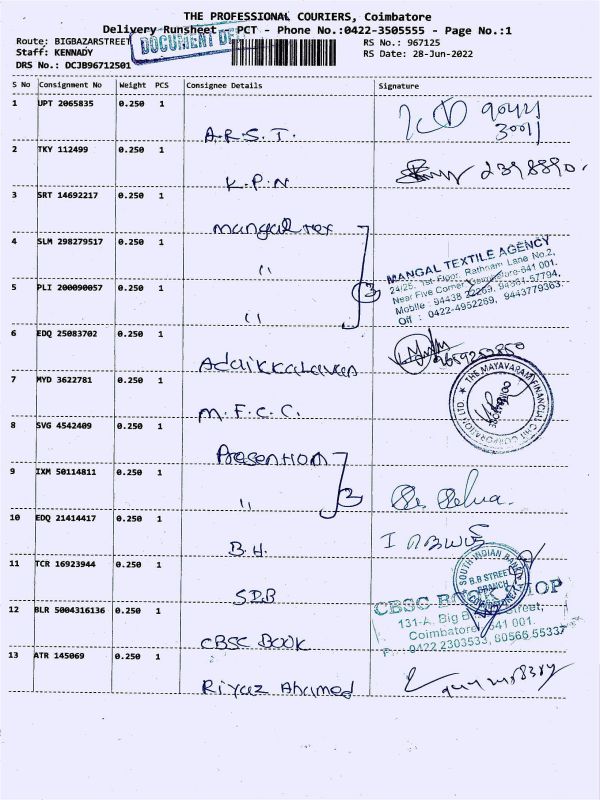 THE PROFESSIONAL COURIERS, Coimbatore
Delivery Runsheet PCT - Phone No.:0422-3505555 - Page No.:1
Route: BIGBAZARSTREET
DOCUMENT DE
RS No.: 967125
Staff: KENNADY
RS Date: 28-Jun-2022
DRS No.: DCJB96712501
S No Consignment No Weight PCS Consignee Details Signature
1 UPT 2065835 0.250 1
A.R.S.T.
2 TKY 112499 0.250 1
K.P.N
3 SRT 14692217 0.250 1
mangal tex
4 SLM 298279517 0.250 1
"
MANGAL TEXTILE AGENCY
24/25, 1st Floor, Rathnam Lane No.2,
Near Five Corner, Coimbatore-641 001.
Mobile : 94438 22269, 94981 57794,
Off : 0422-4952269, 9443779363
5 PLI 200090057 0.250 1
" 3
6 EDQ 25083702 0.250 1
Adaikkalavan
7 MYD 3622781 0.250 1
THE MAYAVARAM FINANCIAL CHIT CORPORATION LTD
M.F.C.C.
8 SVG 4542409 0.250 1
9 IXM 50114811 0.250 1
" 2
10 EDQ 21414417 0.250 1
B.H.
11 TCR 16923944 0.250 1
SOUTH INDIAN BANK
B.B STREET
BRANCH
S.I.B
12 BLR 5004316136 0.250 1
CBSC BOOK SHOP
131-A, Big Street,
Coimbatore 641 001.
0422 2303533, 80566 55337
CBSC BOOK
13 ATR 145069 0.250 1
Riyaz Ahamed